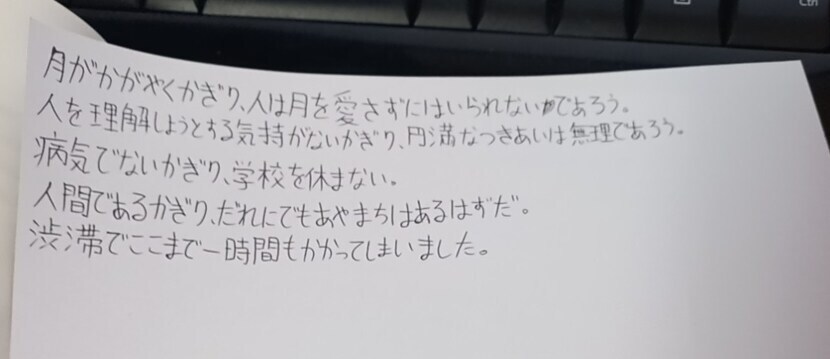 月がかがやくかぎり、人は月を愛さずにはいられないであろう。
人を理解しようとする気持がないかぎり、円満なつきあいは無理であろう。
病気でないかぎり、学校を休まない。
人間であるかぎり、だれにでもあやまちはあるはずだ。
渋滞でここまで一時間もかかってしまいました。
Ctrl